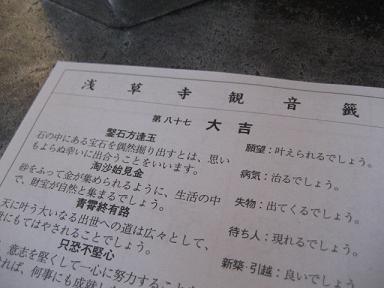 浅草寺観音籤
第八十七 大吉
鑿石方逢玉
石の中にある宝石を偶然掘り出すとは、思い
もよらぬ幸いに出合うことをいいます。
淘沙始見金
砂をふって金が集められるように、生活の中
で、財宝が自然と集まるでしょう。
青霄終有路
天に叶う大いなる出世への道は広々として、
にもてはやされることでしょう。
只恐不堅心
、意志を堅くして一心に努力すること
れば、何事にも成就し
願望：叶えられるでしょう。
病気：治るでしょう。
失物：出てくるでしょう。
待ち人：現れるでしょう。
新築・引越：良いでしょう